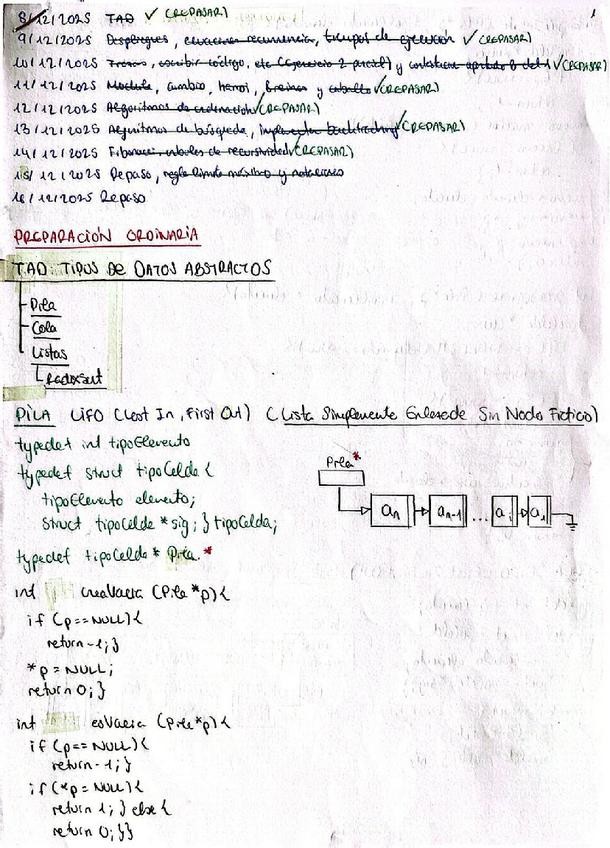 1
8/12/2025 TAD ✓ (REPASAR)
9/12/2025 Despliegues, ecuaciones recurrencia, tiempos de ejecución ✓ (REPASAR)
10/12/2025 Trenes, escribir código, etc (ejercicio 2 parcial) y contestar apartado B del 1 ✓ (REPASAR)
11/12/2025 Mochila, cambio, hanoi, y caballo ✓ (REPASAR)
12/12/2025 Algoritmos de ordenación ✓ (REPASAR)
13/12/2025 Algoritmos de búsqueda, implementar backtracking ✓ (REPASAR)
14/12/2025 Fibonacci árboles de recursividad ✓ (REPASAR)
15/12/2025 Repaso, regla límite máximo y notaciones
16/12/2025 Repaso
PREPARACIÓN ORDINARIA
TAD: TIPOS DE DATOS ABSTRACTOS
Pila
Cola
Listas
RadixSort
PILA LIFO (Last In, First Out) (Lista Simplemente Enlazada Sin Nodo Ficticio)
typedef int tipoElemento
typedef struct tipoCelda {
tipoElemento elemento;
struct tipoCelda * sig; } tipoCelda;
typedef tipoCelda * Pila. *
Pila *
an an-1 ... ai a1
int creaVacia (Pila *p) {
if (p == NULL) {
return -1; }
*p = NULL;
return 0; }
int esVacia (Pila *p) {
if (p == NULL) {
return -1; }
if (*p = NULL) {
return 1; } else {
return 0; }}